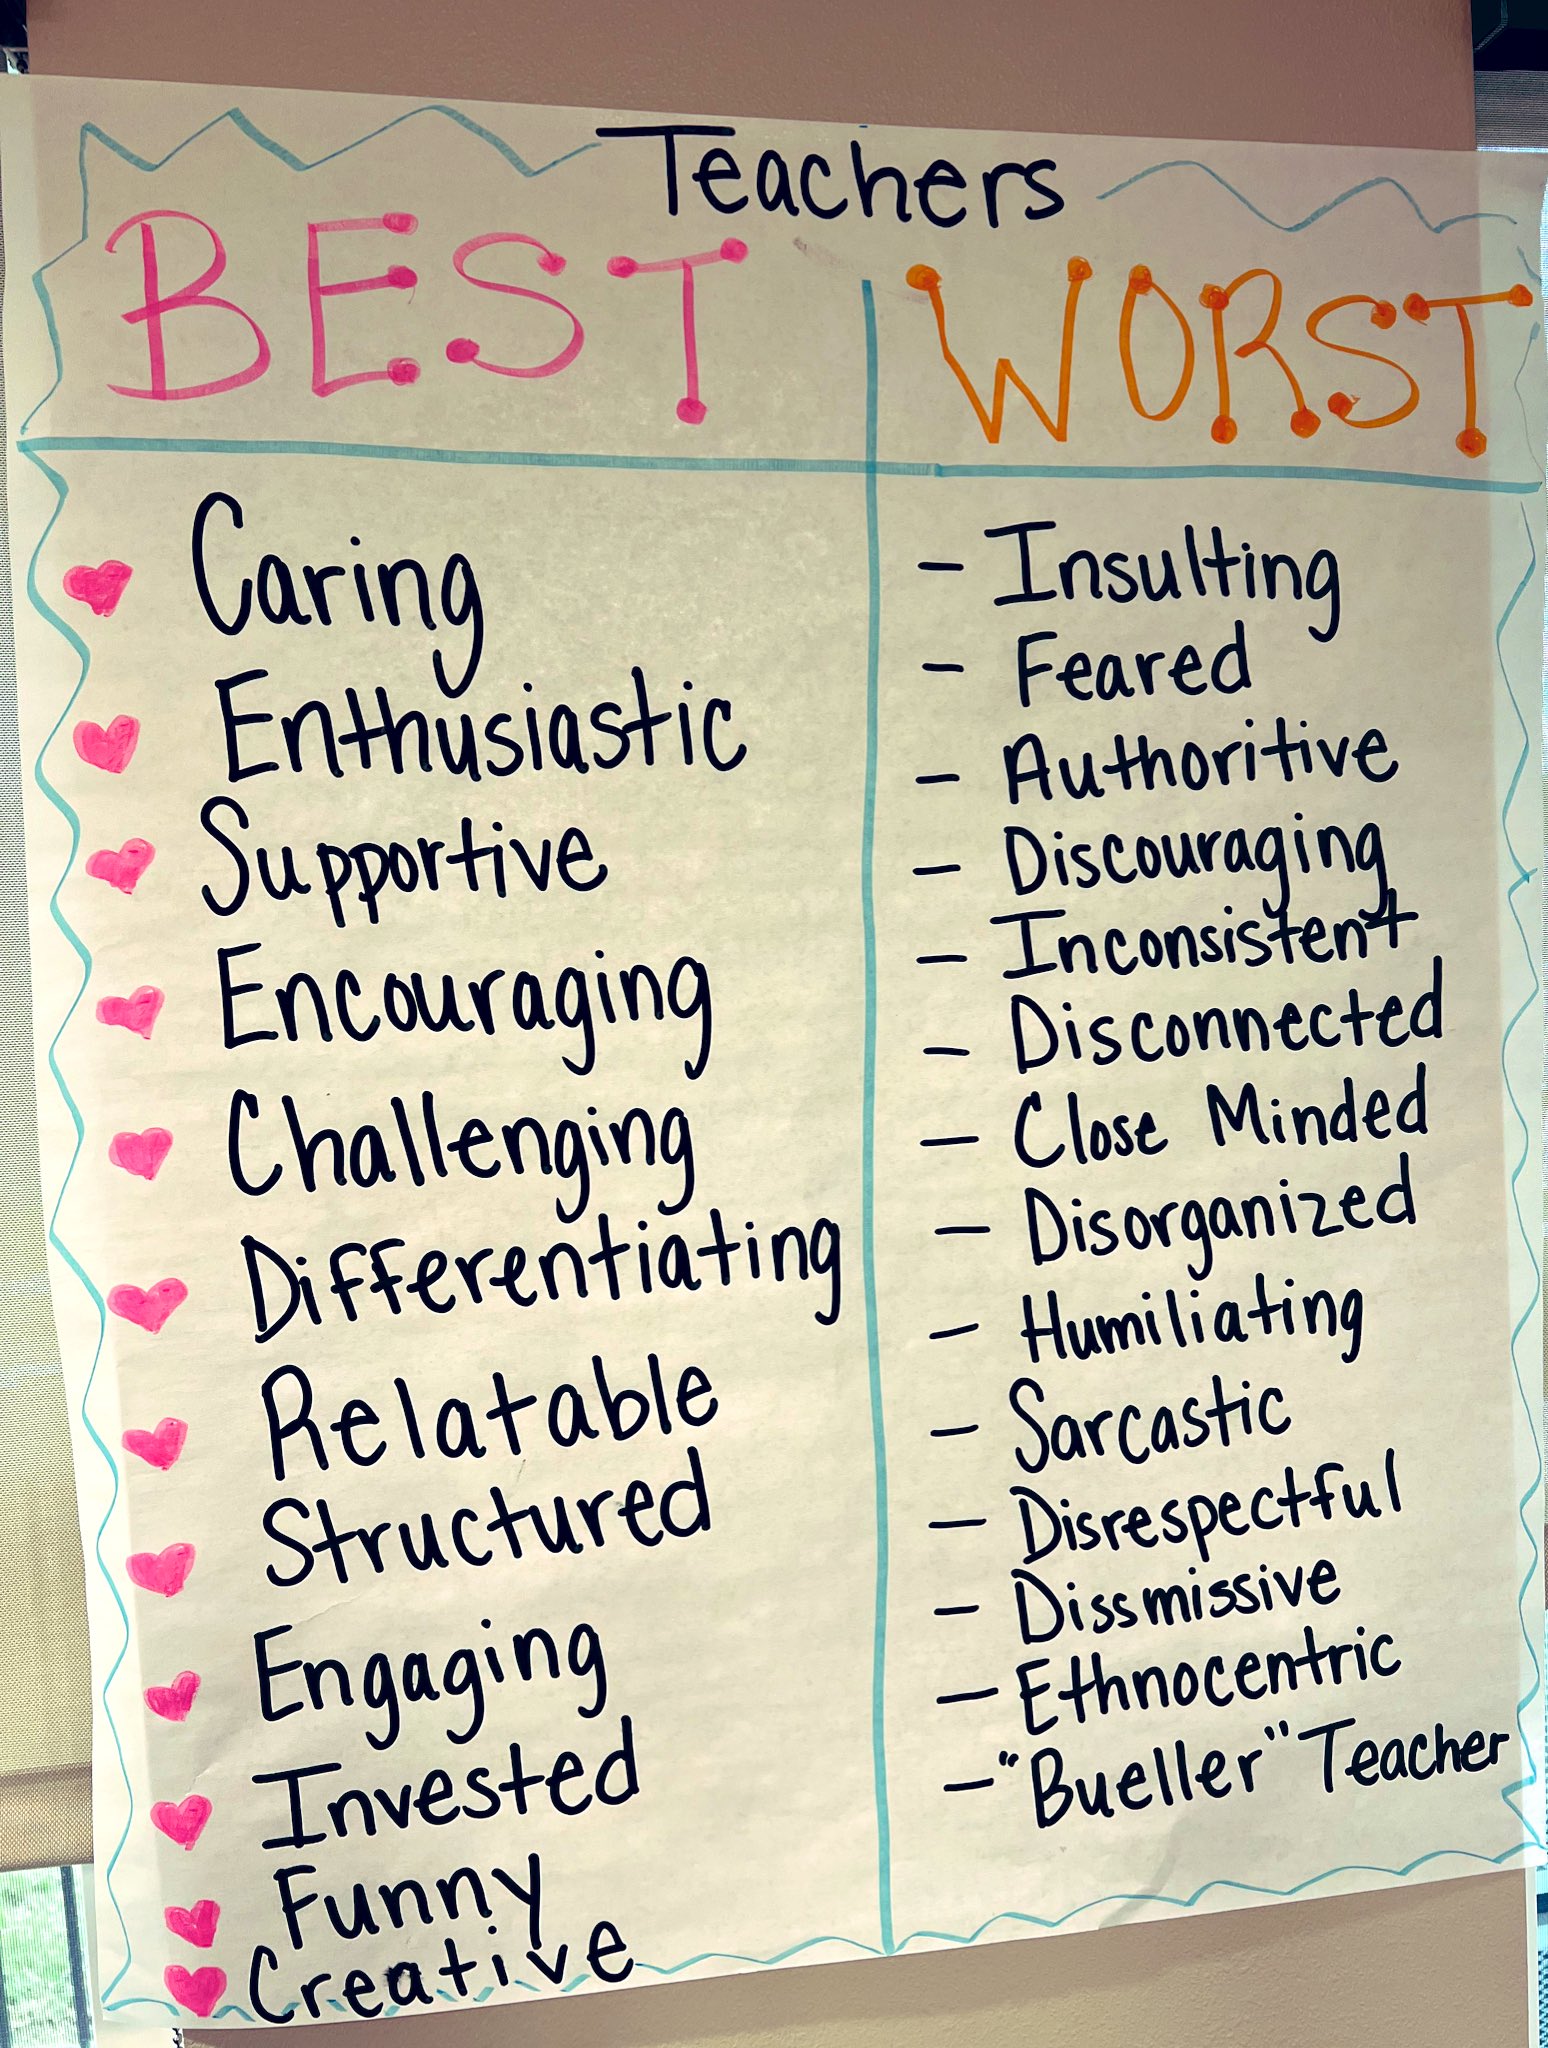 Teachers
BEST
WORST
Caring
Enthusiastic
Supportive
Encouraging
Challenging
Differentiating
Relatable
Structured
Engaging
Invested
Funny
Creative
- Insulting
- Feared
- Authoritive
- Discouraging
- Inconsistent
- Disconnected
- Close Minded
- Disorganized
- Humiliating
- Sarcastic
- Disrespectful
- Dissmissive
- Ethnocentric
- "Bueller" Teacher